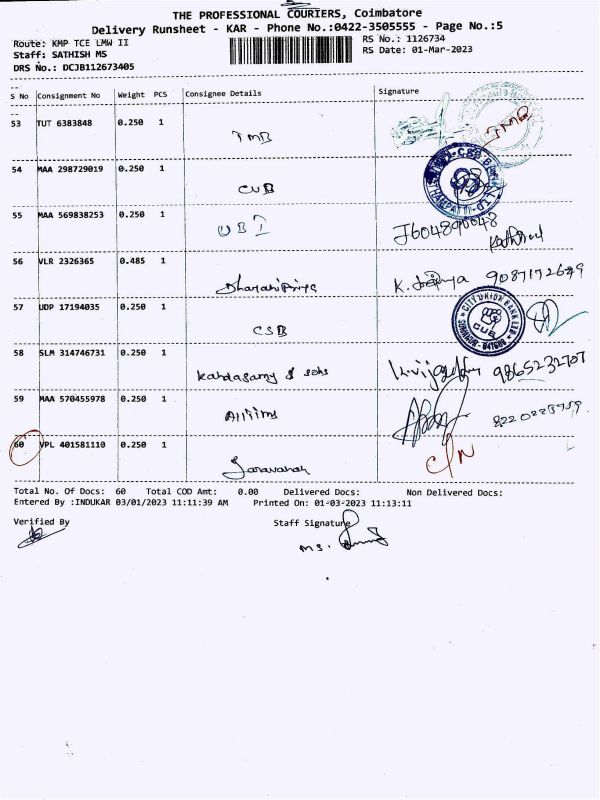 THE PROFESSIONAL COURIERS, Coimbatore
Delivery Runsheet - KAR - Phone No.:0422-3505555 - Page No.:5
Route: KMP TCE LMW II RS No.: 1126734
Staff: SATHISH MS RS Date: 01-Mar-2023
DRS No.: DCJB112673405
S No Consignment No Weight PCS Consignee Details Signature
53 TUT 6383848 0.250 1 TMB TMB
54 MAA 298729019 0.250 1 CUB
55 MAA 569838253 0.250 1 UBI
56 VLR 2326365 0.485 1 Dharanipriya K.
57 UDP 17194035 0.250 1 CSB CITY UNION BANK LTD CUB
58 SLM 314746731 0.250 1 Kandasamy & sons 9865232707
59 MAA 570455978 0.250 1
60 VPL 401581110 0.250 1 Saravanan C/N
Total No. Of Docs: 60 Total COD Amt: 0.00 Delivered Docs: Non Delivered Docs:
Entered By :INDUKAR 03/01/2023 11:11:39 AM Printed On: 01-03-2023 11:13:11
Verified By Staff Signature
MS.